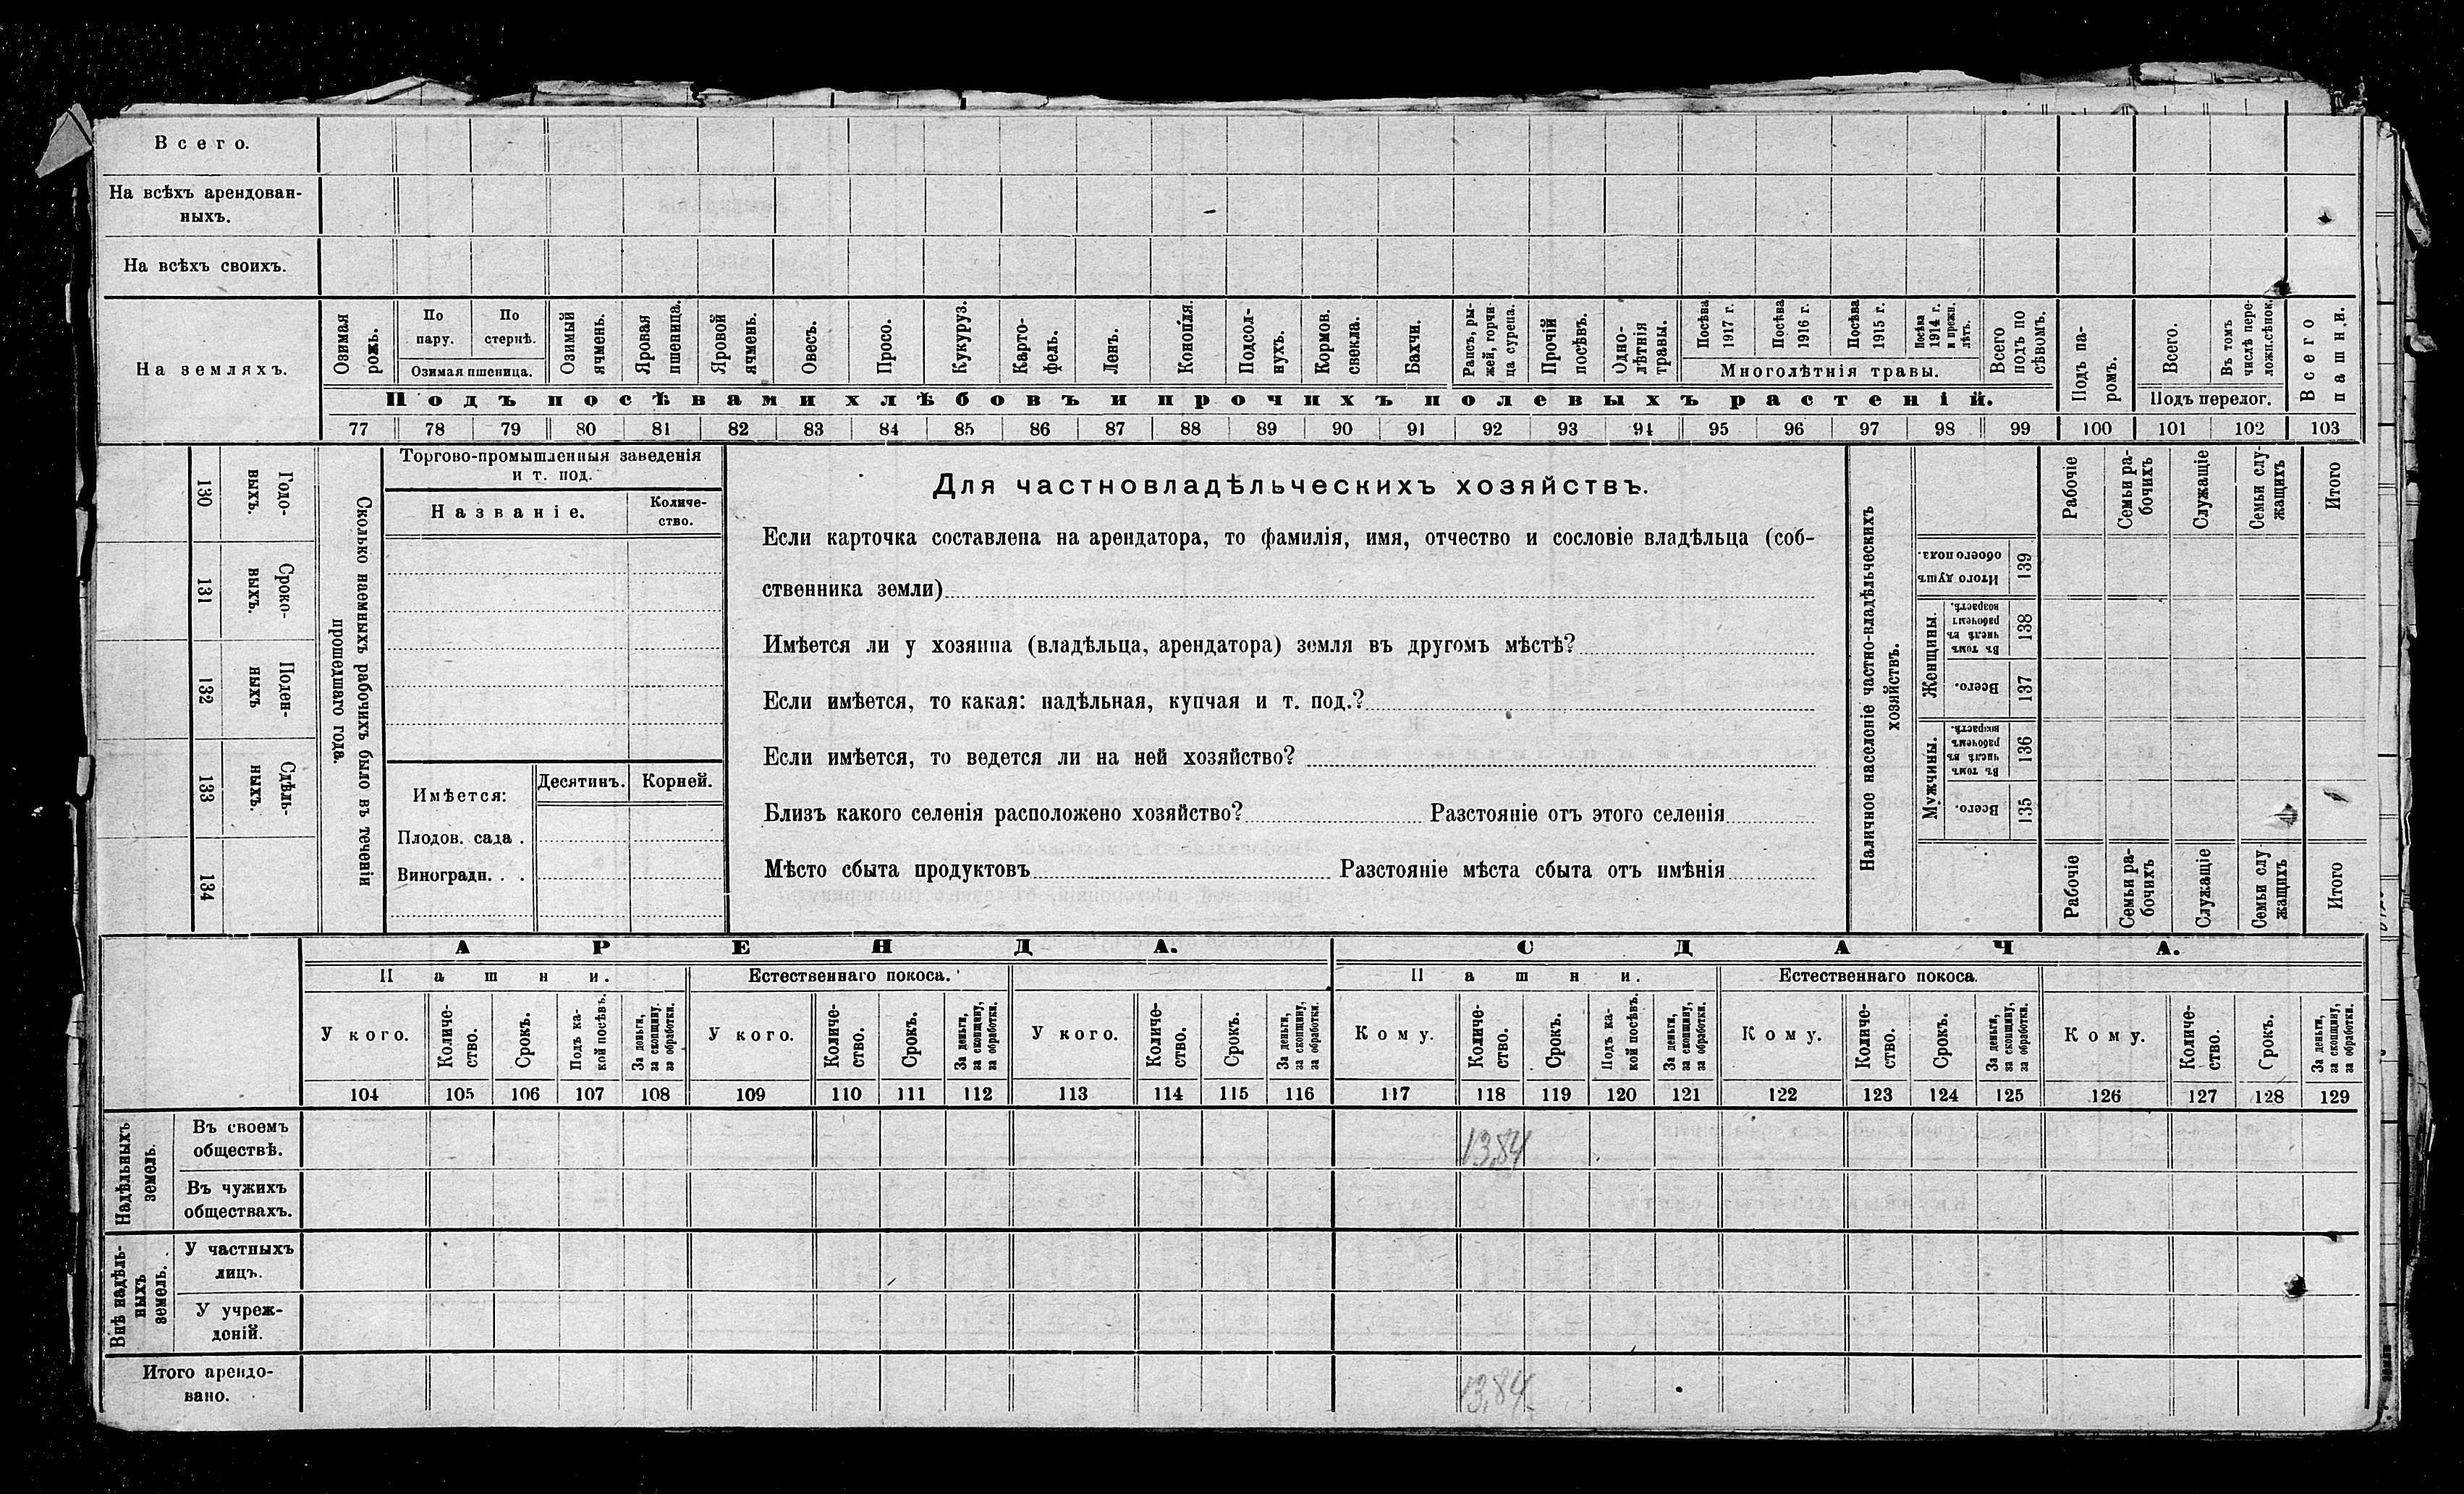 Всего.
На всѣхъ арендован-
ныхъ.
На всѣхъ своихъ.
На земляхъ.
Озимая рожь.
По пару.
По стернѣ.
Озимая пшеница.
Озимый ячмень.
Яровая пшеница.
Яровой ячмень.
Овесъ.
Просо.
Кукуруз.
Карто-
фель.
Ленъ.
Конопля.
Подсол-
нухъ.
Кормов. свекла.
Бахчи.
Рапсъ, ры-
жей, горчи-
ца сурепа.
Прочій посѣвъ.
Одно-
лѣтнія травы.
Посѣва 1917 г.
Посѣва 1916 г.
Посѣва 1915 г.
Посѣва 1914 г. и прежн. лѣтъ.
Многолѣтнія травы.
Всего подъ по
сѣвомъ.
Подъ па-
ромъ.
Всего.
Въ томъ числѣ пере-
ложн.сѣнок.
Подъ перелог.
Всего пашни.
Подъ посѣвами хлѣбовъ и прочихъ полевыхъ растеній.
77 78 79 80 81 82 83 84 85 86 87 88 89 90 91 92 93 94 95 96 97 98 99 100 101 102 103
130 Годо-
выхъ.
131 Сроко-
выхъ.
132 Поден-
ныхъ
133 Сдѣль-
ныхъ.
134
Сколько наемныхъ рабочихъ было въ теченіи
прошедшаго года.
Торгово-промышленныя заведенія
и т. под.
Названіе.
Количе-
ство.
Имѣется:
Десятинъ.
Корней.
Плодов. сада .
Виноградн. . .
Для частновладѣльческихъ хозяйствъ.
Если карточка составлена на арендатора, то фамилія, имя, отчество и сословіе владѣльца (соб-
ственника земли)
Имѣется ли у хозяина (владѣльца, арендатора) земля въ другомъ мѣстѣ?
Если имѣется, то какая: надѣльная, купчая и т. под.?
Если имѣется, то ведется ли на ней хозяйство?
Близъ какого селенія расположено хозяйство? Разстояніе отъ этого селенія
Мѣсто сбыта продуктовъ Разстояніе мѣста сбыта отъ имѣнія
Наличное населеніе частно-владѣльческихъ
хозяйствъ.
Рабочіе
Семьи ра-
бочихъ
Служащіе
Семьи слу-
жащихъ
Итого
Итого душъ обоего пола. 139
Женщины.
Въ томъ числѣ въ рабочемъ возрастѣ. 138
Всего. 137
Мужчины.
Въ томъ числѣ въ рабочемъ возрастѣ. 136
Всего. 135
Рабочіе
Семьи ра-
бочихъ
Служащіе
Семьи слу
жащихъ
Итого
АРЕНДА. СДАЧА.
Пашни. Естественнаго покоса. Пашни. Естественнаго покоса.
У кого.
Количе-
ство.
Срокъ.
Подъ ка-
кой посѣвъ.
За деньги,
за скопщину,
за обработки.
У кого.
Количе-
ство.
Срокъ.
За деньги,
за скопщину,
за обработки.
У кого.
Количе-
ство.
Срокъ.
За деньги,
за скопщину,
за обработки.
Кому.
Количе-
ство.
Срокъ.
Подъ ка-
кой посѣвъ.
За деньги,
за скопщину,
за обработки.
Кому.
Количе-
ство.
Срокъ.
За деньги,
за скопщину,
за обработки.
Кому.
Количе-
ство.
Срокъ.
За деньги,
за скопщину,
за обработки.
104 105 106 107 108 109 110 111 112 113 114 115 116 117 118 119 120 121 122 123 124 125 126 127 128 129
Надѣльныхъ
земель.
Въ своемъ
обществѣ.
13,84
Въ чужихъ
обществахъ.
Внѣ надѣль-
ныхъ
земель.
У частныхъ
лицъ.
У учреж-
деній.
Итого арендо-
вано.
13,84